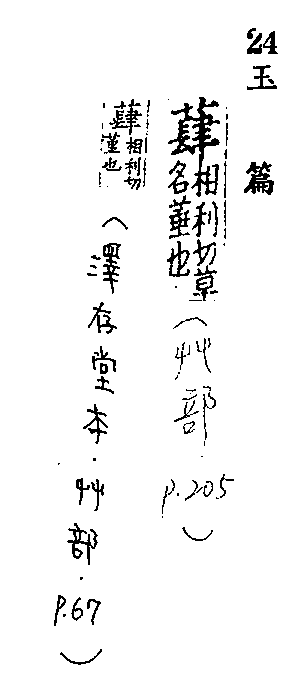 24玉篇
蕼相利切草
名菫也（艸部p.205）
蕼相利切
菫也（澤存堂本.艸部.p.67）